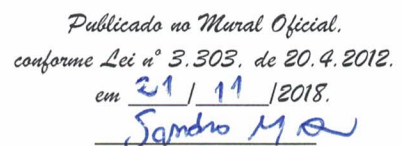 Publicado no Mural Oficial,
conforme Lei nº 3.303, de 20.4.2012.
em 21/11/2018.
Sandro M